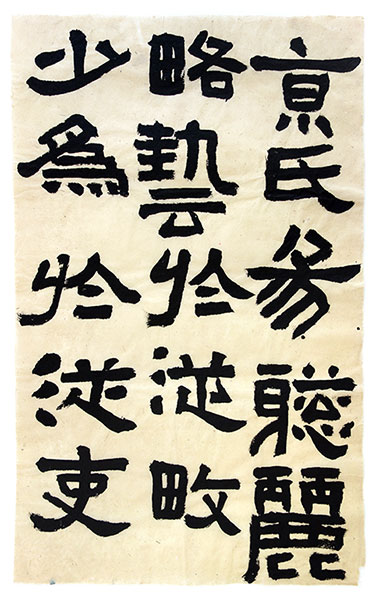 京氏易聰麗
略藝於從畋
少為於從吏